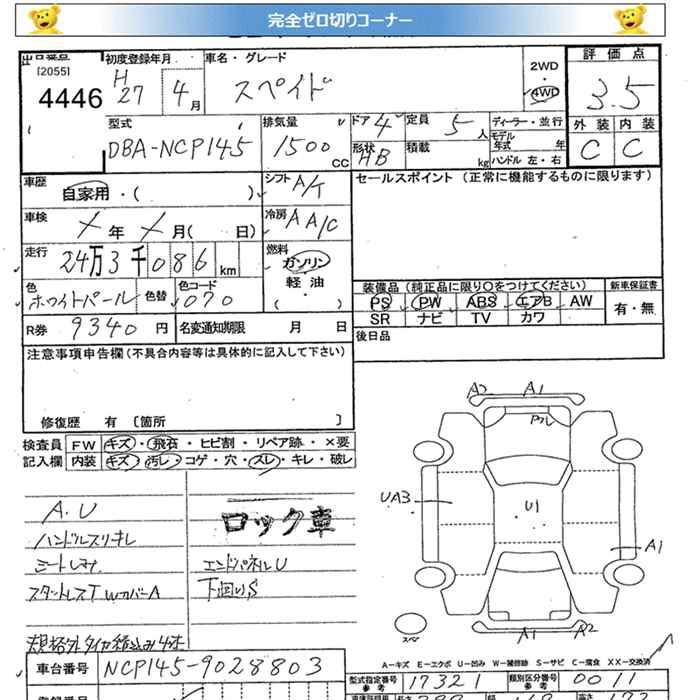 完全ゼロ切りコーナー
出品番号
[2055]
4446
初度登録年月
H
27 4月
車名・グレード
スペイド
2WD
・
4WD
評価点
3.5
外装 内装
C C
型式
DBA-NCP145
排気量
1500
CC
ドア 4
定員 5人
形状 HB
積載 kg
ディーラー・並行
モデル年式 年
ハンドル 左・右
車歴
自家用・( )
シフト A/T
セールスポイント (正常に機能するものに限ります)
車検
年 月( 日)
冷房 AA/C
走行
24万3千086km
燃料
ガソリン
軽油
( )
色
ホワイトパール
色替
色コード
070
装備品 (純正品に限り○をつけてください)
新車保証書
PS PW ABS エアB AW
SR ナビ TV カワ
有・無
R券 9340円
名変通知期限 月 日
後日品
注意事項申告欄(不具合内容等は具体的に記入して下さい)
修復歴 有 [箇所 ]
検査員記入欄
FW キズ・飛石・ヒビ割・リペア跡・×要
内装 キズ・汚レ・コゲ・穴・スレ・キレ・破レ
A2 A1
UA3
U1
A1
A1 A2
A.U
ハンドルスリキレ
スタットレスT WカバーA
ロック車
エンドパネルU
下回りS
スペア
A−キズ E−エクボ U−凹み W−補修跡 S−サビ C−腐食 XX−交換済
車台番号 NCP145-9028803
型式指定番号
参考
17321
類別区分番号
参考
0011